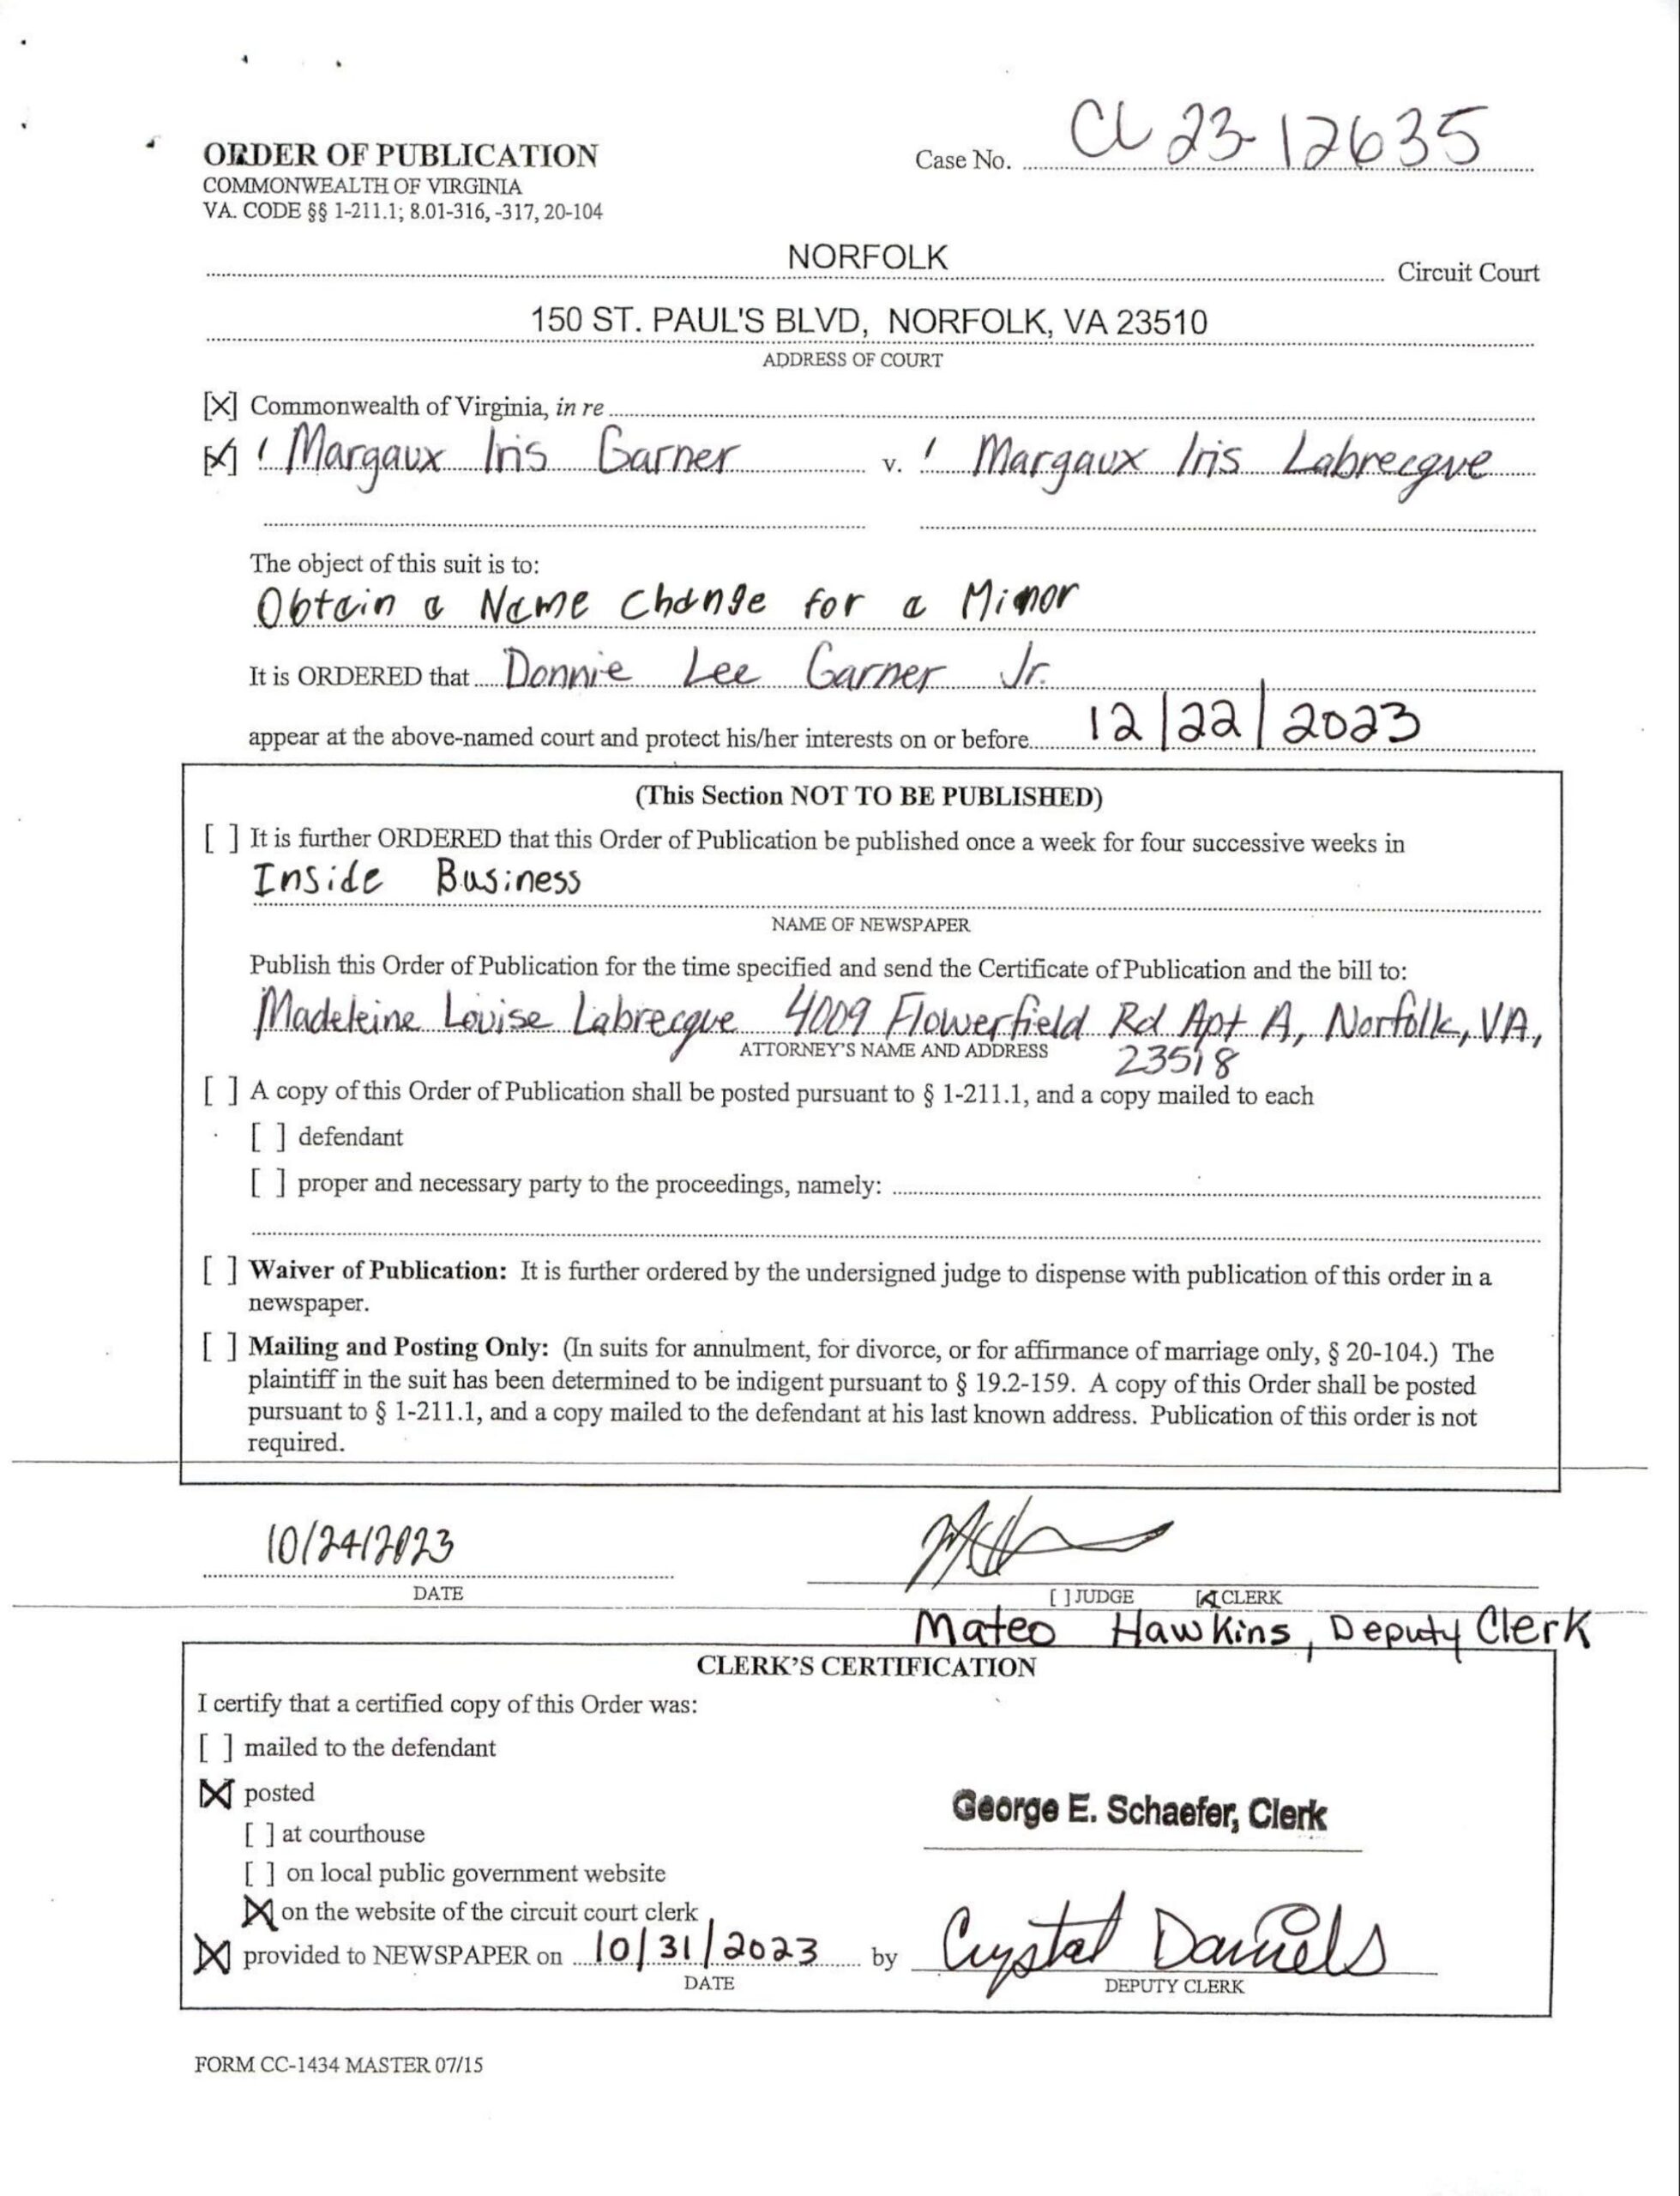 ORDER OF PUBLICATION
COMMONWEALTH OF VIRGINIA
VA. CODE §§ 1-211.1; 8.01-316, -317, 20-104
Case No. CL 23-12635
NORFOLK Circuit Court
150 ST. PAUL'S BLVD, NORFOLK, VA 23510
ADDRESS OF COURT
[X] Commonwealth of Virginia, in re
[X] Margaux Iris Garner v. Margaux Iris Labrecque
The object of this suit is to:
Obtain a Name Change for a Minor
It is ORDERED that Donnie Lee Garner Jr.
appear at the above-named court and protect his/her interests on or before 12/22/2023
(This Section NOT TO BE PUBLISHED)
[ ] It is further ORDERED that this Order of Publication be published once a week for four successive weeks in
Inside Business
NAME OF NEWSPAPER
Publish this Order of Publication for the time specified and send the Certificate of Publication and the bill to:
Madeleine Louise Labrecque 4009 Flowerfield Rd Apt A, Norfolk, VA,
23518
ATTORNEY'S NAME AND ADDRESS
[ ] A copy of this Order of Publication shall be posted pursuant to § 1-211.1, and a copy mailed to each
[ ] defendant
[ ] proper and necessary party to the proceedings, namely:
[ ] Waiver of Publication: It is further ordered by the undersigned judge to dispense with publication of this order in a
newspaper.
[ ] Mailing and Posting Only: (In suits for annulment, for divorce, or for affirmance of marriage only, § 20-104.) The
plaintiff in the suit has been determined to be indigent pursuant to § 19.2-159. A copy of this Order shall be posted
pursuant to § 1-211.1, and a copy mailed to the defendant at his last known address. Publication of this order is not
required.
10/24/2023
DATE
[ ] JUDGE [X] CLERK
Mateo Hawkins, Deputy Clerk
CLERK'S CERTIFICATION
I certify that a certified copy of this Order was:
[ ] mailed to the defendant
[X] posted
[ ] at courthouse
[ ] on local public government website
[X] on the website of the circuit court clerk
[X] provided to NEWSPAPER on 10/31/2023 by Crystal Daniels
DATE
DEPUTY CLERK
George E. Schaefer, Clerk
FORM CC-1434 MASTER 07/15